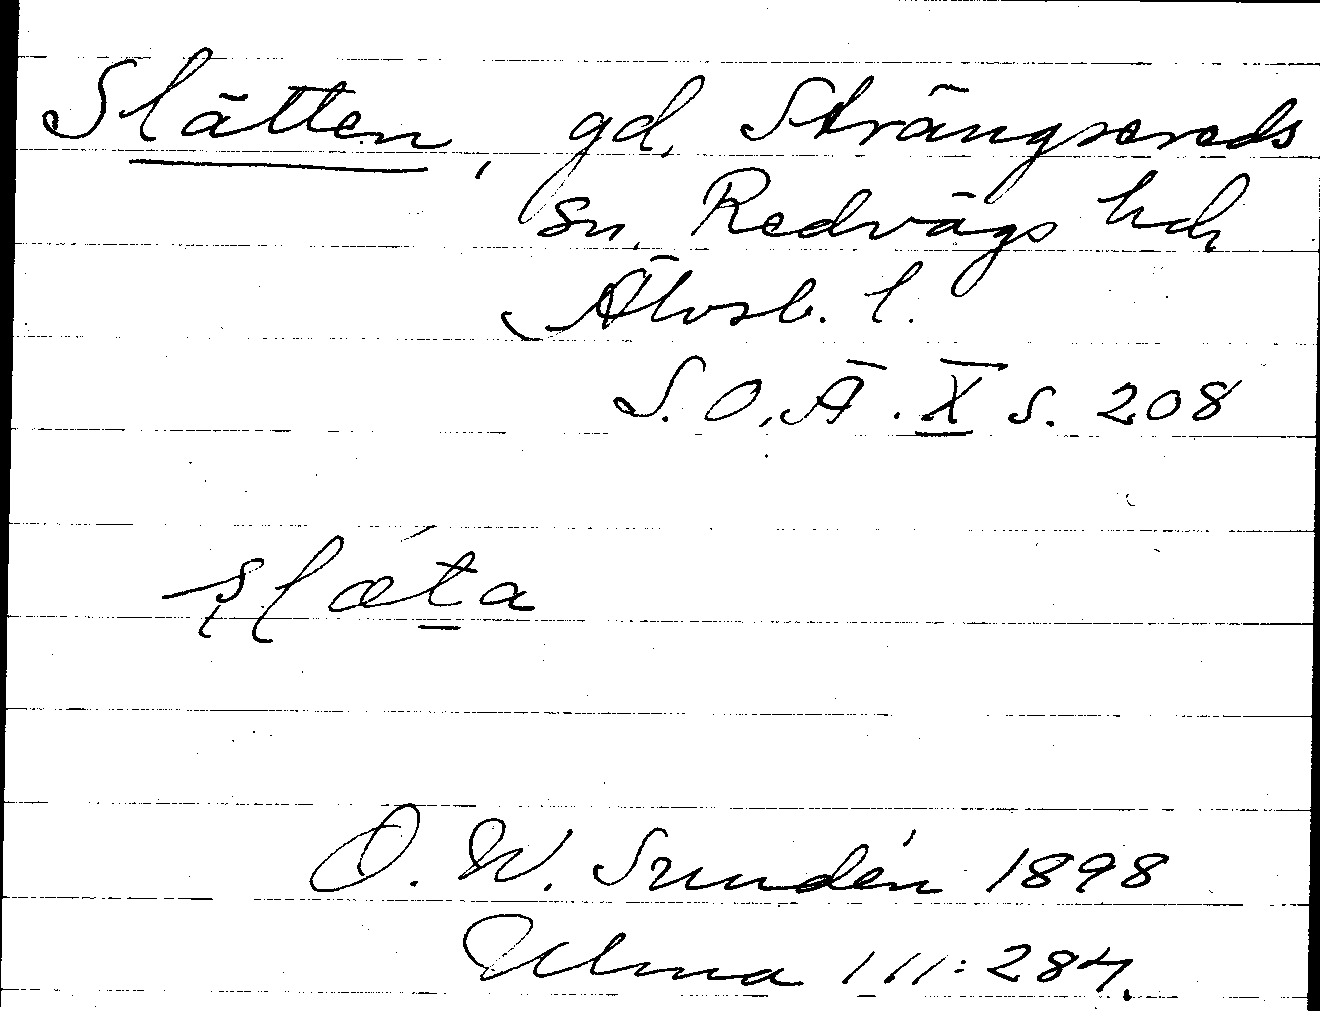 Slätten, gd, Strängsereds
sn, Redvägs hd
Älvsb. l.
S. O. Ä. X s. 208
slæ´ta
D. W. Sundén 1898
Ulma 111:284.